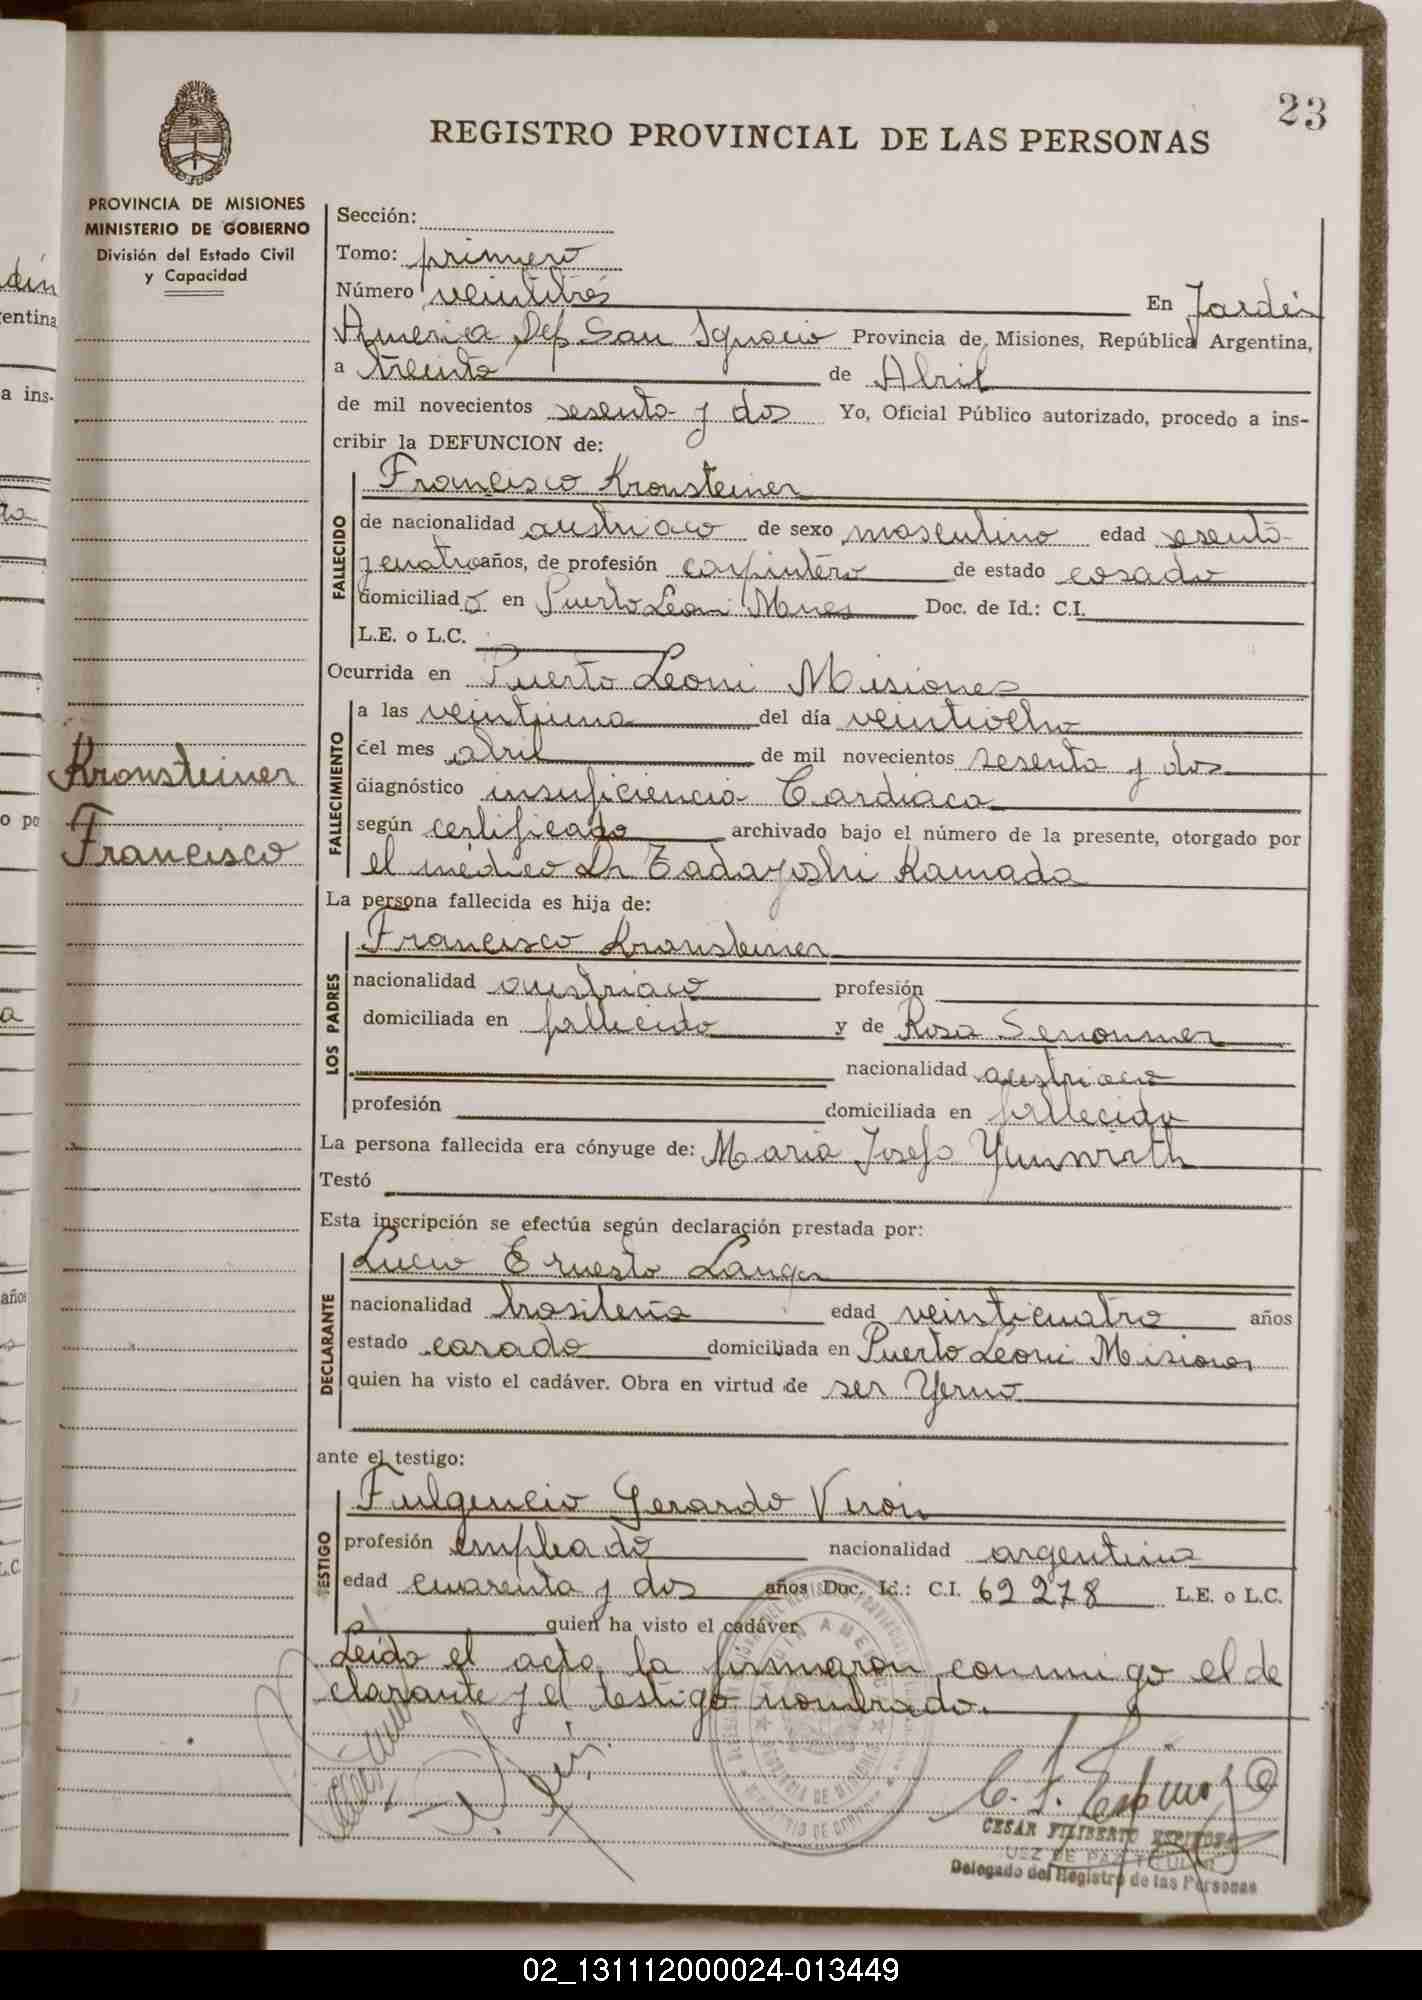 23
REGISTRO PROVINCIAL DE LAS PERSONAS
PROVINCIA DE MISIONES
MINISTERIO DE GOBIERNO
División del Estado Civil
y Capacidad
Kronsteiner
Francisco
Sección:
Tomo: primero
Número veintitrés En Jardín
America Dep San Ignacio Provincia de Misiones, República Argentina,
a treinta de Abril
de mil novecientos sesenta y dos Yo, Oficial Público autorizado, procedo a ins-
cribir la DEFUNCION de:
Francisco Kronsteiner
FALLECIDO
de nacionalidad austriaco de sexo masculino edad sesenta
y cuatro años, de profesión carpintero de estado casado
domiciliado en Puerto Leoni Mnes Doc. de Id.: C.I.
L.E. o L.C.
Ocurrida en Puerto Leoni Misiones
FALLECIMIENTO
a las veintiuna del día veintiocho
del mes abril de mil novecientos sesenta y dos
diagnóstico insuficiencia Cardiaca
según certificado archivado bajo el número de la presente, otorgado por
el médico Dr Tadayoshi Kamada
La persona fallecida es hija de:
Francisco Kronsteiner
LOS PADRES
nacionalidad austriaco profesión
domiciliada en fallecido y de Rosa
nacionalidad austriaco
profesión domiciliada en fallecida
La persona fallecida era cónyuge de: Maria Josefa
Testó
Esta inscripción se efectúa según declaración prestada por:
Lucio Ernesto Langer
DECLARANTE
nacionalidad brasileña edad veinticuatro años
estado casado domiciliada en Puerto Leoni Misiones
quien ha visto el cadáver. Obra en virtud de ser Yerno
ante el testigo:
Fulgencio Gerardo Veron
TESTIGO
profesión empleado nacionalidad argentina
edad cuarenta y dos años Doc. Id.: C.I. 62278 L.E. o L.C.
quien ha visto el cadáver
Leida el acta, la firmaron conmigo el de
clarante y el testigo nombrado.
C. F. Espinosa
CESAR FILIBERTO ESPINOSA
JUEZ DE PAZ TITULAR
Delegado del Registro de las Personas
02_131112000024-013449